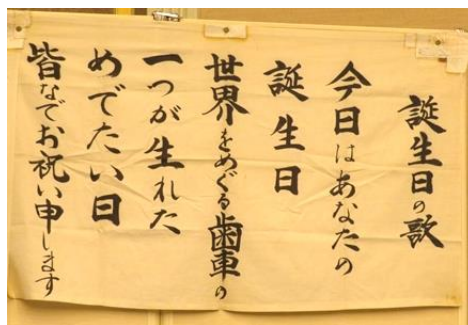 誕生日の歌
今日はあなたの
誕生日
世界をめぐる歯車の
一つが生れた
めでたい日
皆なでお祝い申します